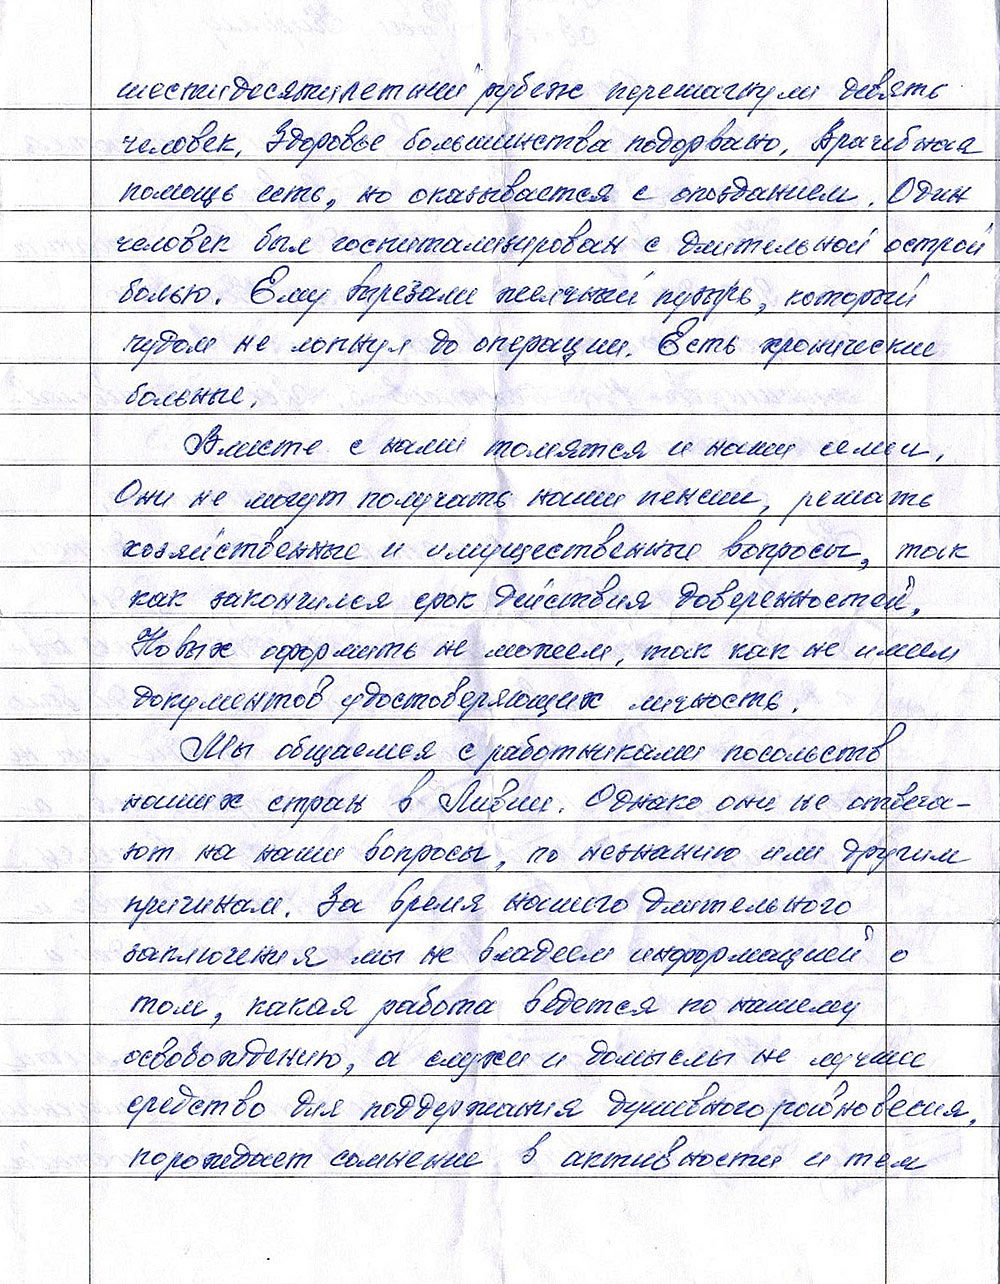 шестидесятилетний рубеж перешагнули девять
человек. Здоровье большинства подорвано. Врачебная
помощь есть, но оказывается с опозданием. Один
человек был госпитализирован с длительной острой
болью. Ему вырезали желчный пузырь, который
чудом не лопнул до операции. Есть хронические
больные.
Вместе с нами томятся и наши семьи.
Они не могут получать наши пенсии, решать
хозяйственные и имущественные вопросы, так
как закончился срок действия доверенностей.
Новых оформить не можем, так как не имеем
документов удостоверяющих личность.
Мы общаемся с работниками посольств
наших стран в Ливии. Однако они не отвеча-
ют на наши вопросы, по незнанию или другим
причинам. За время нашего длительного
заключения мы не владеем информацией о
том, какая работа ведется по нашему
освобождению, а слухи и домыслы не лучшие
средство для поддержания душевного равновесия,
порождает сомнение в активности и тем